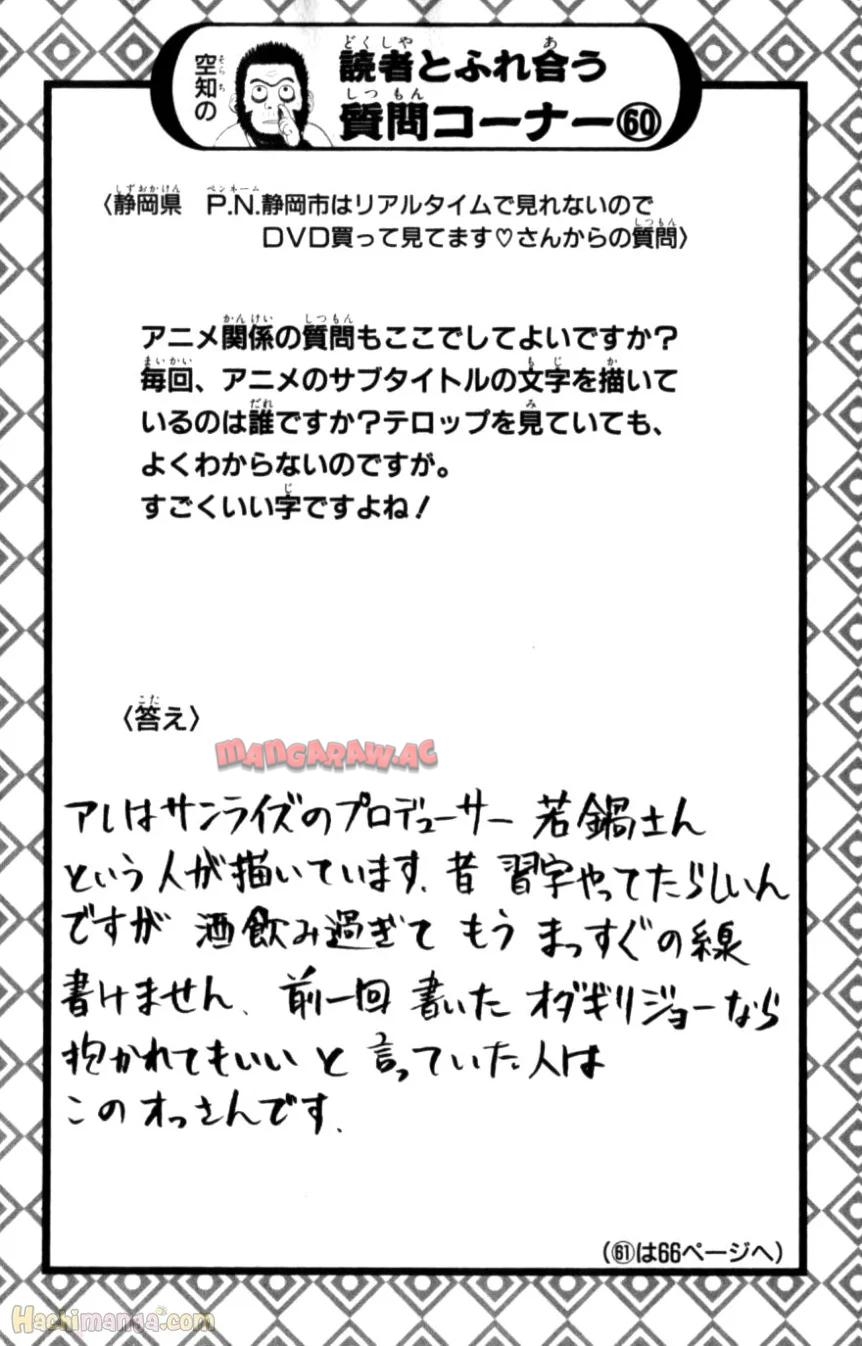 空知の
読者とふれ合う
質問コーナー60
〈静岡県 P.N.静岡市はリアルタイムで見れないので
DVD買って見てます♡さんからの質問〉
アニメ関係の質問もここでしてよいですか?
毎回、アニメのサブタイトルの文字を描いて
いるのは誰ですか?テロップを見ていても、
よくわからないのですが。
すごくいい字ですよね!
〈答え〉
MANGARAW.AC
アレはサンライズのプロデューサー 若鍋さん
という人が描いています。昔 習字やってたらしいん
ですが 酒飲み過ぎて もう まっすぐの線
書けません。前一回 書いた オダギリジョーなら
抱かれてもいい と 言っていた人は
このオっさんです。
(61は66ページへ)
Hachimanga.com